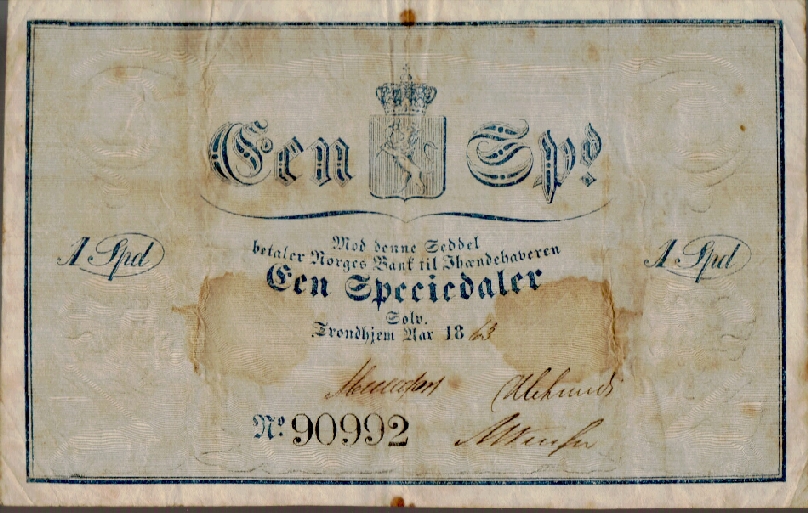 Een Sps
1 Spd
1 Spd
Mod denne Seddel
betaler Norges Bank til Ihændehaveren
Een Speciedaler
Sølv.
Trondhjem Aar 1863
No 90992